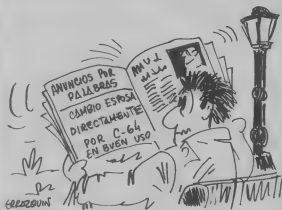 ANUNCIOS POR
PALABRAS
CAMBIO ESPOSA
DIRECTAMENTE
POR C-64
EN BUEN USO
ERROZQUIN